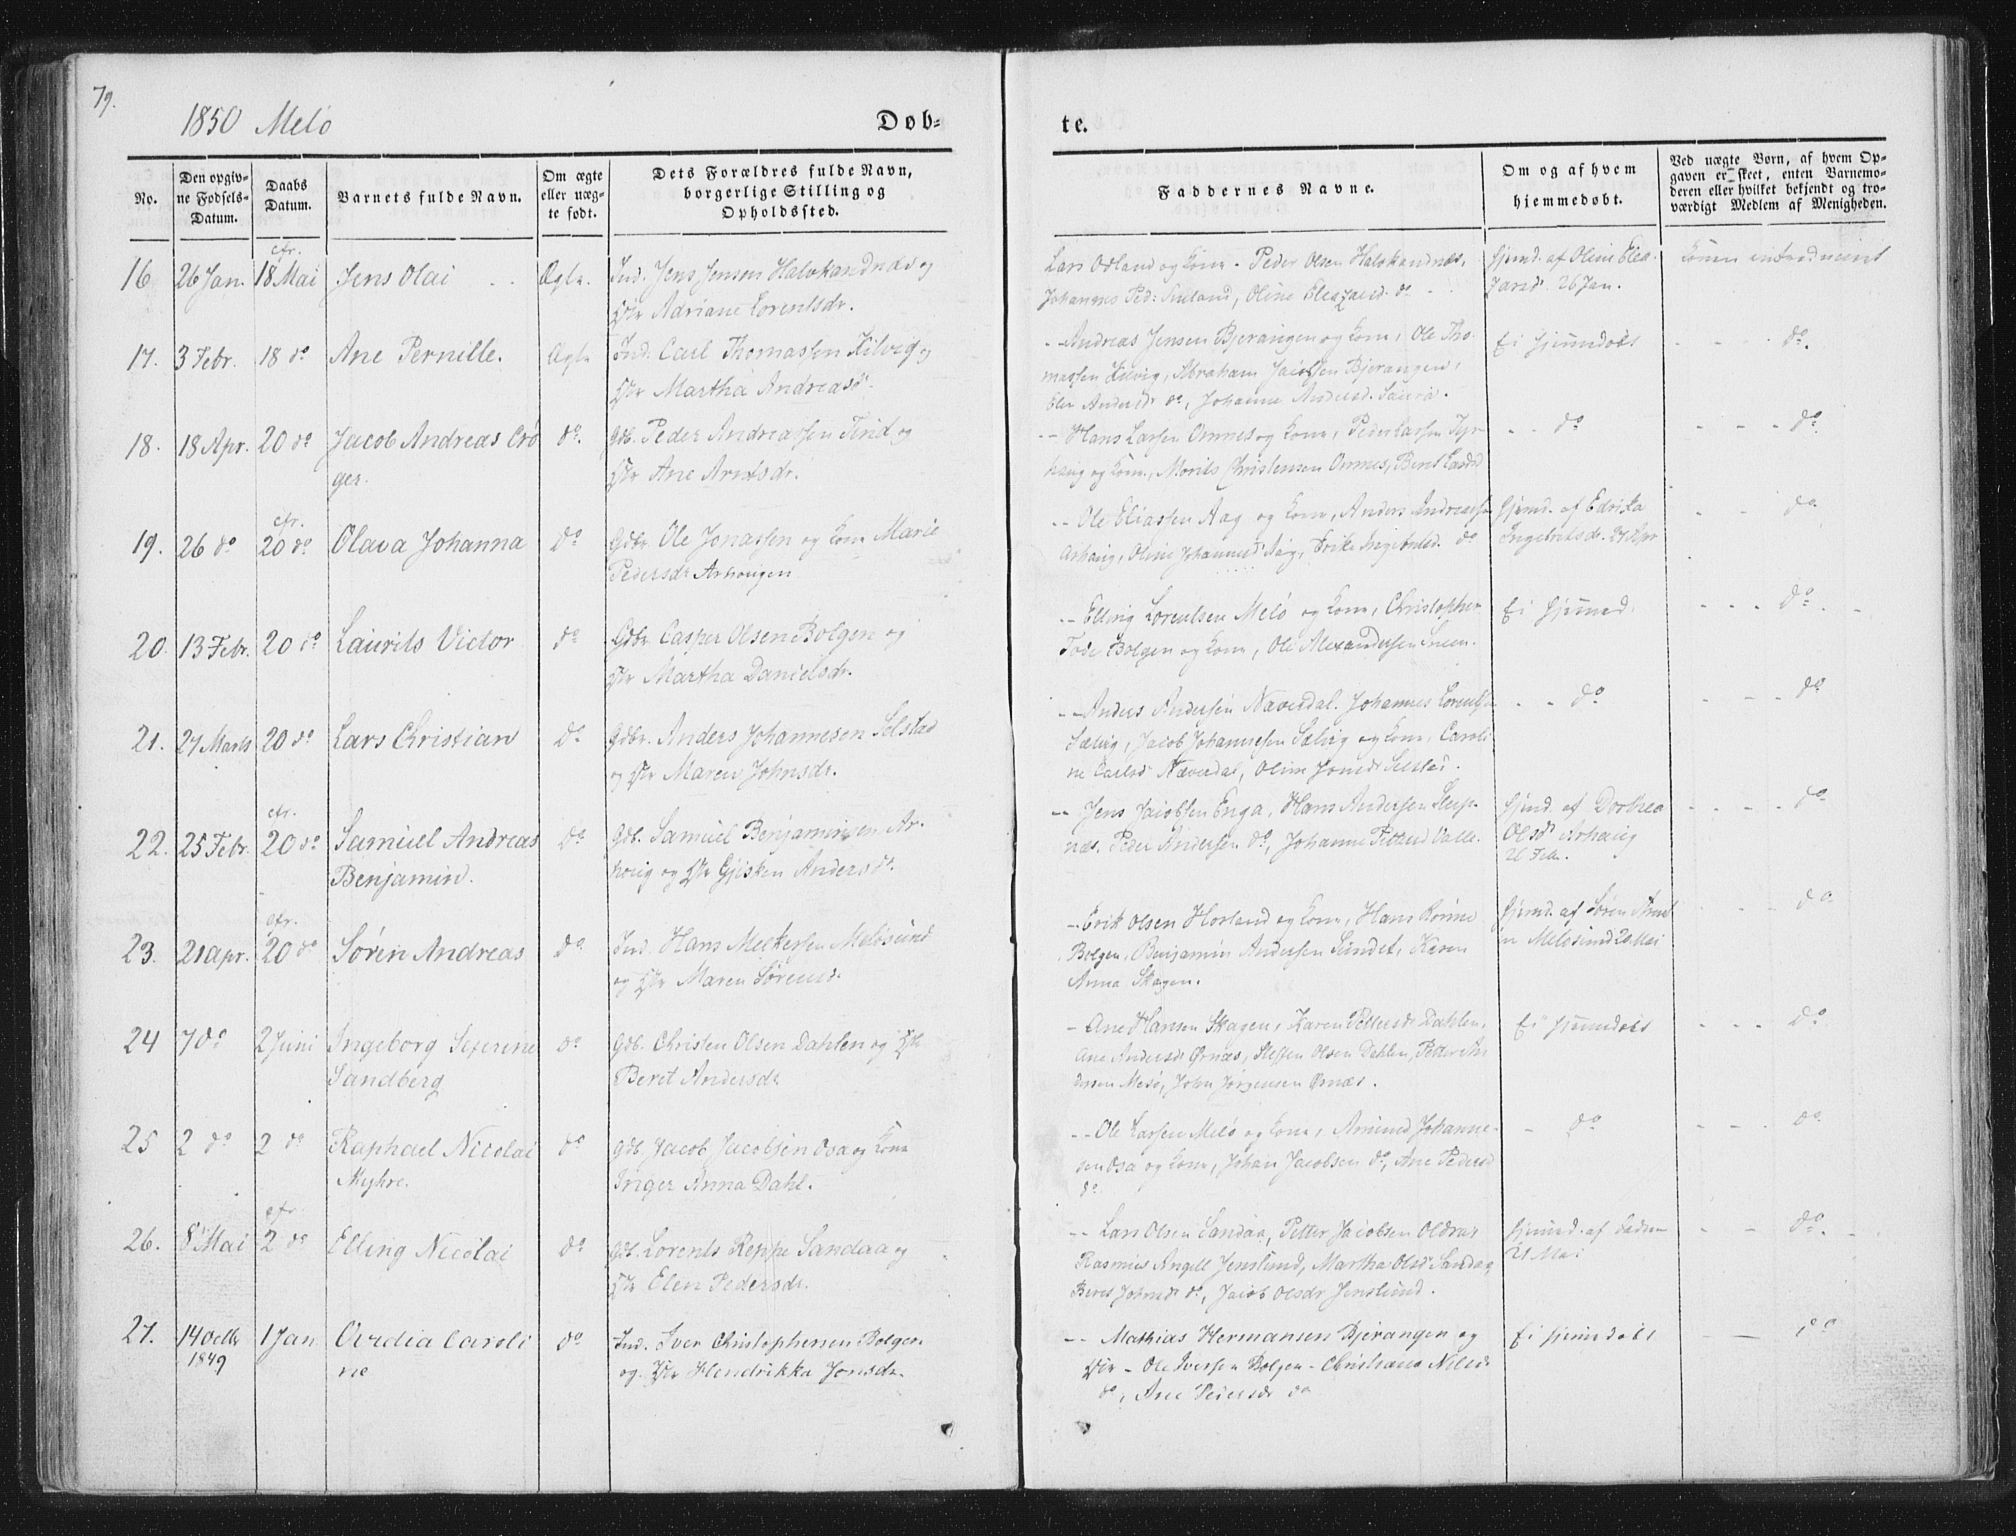 79.
1850 Melö
Døb-
te.
No.
Den opgiv-
ne Fødsels-
Datum.
Daabs
Datum.
Barnets fulde Navn.
Om ægte
eller uæg-
te født.
Dets Forældres fulde Navn,
borgerlige Stilling og
Opholdssted.
Faddernes Navne.
Om og af hvem
hjemmedøbt.
Ved uægte Børn, af hvem Op-
gaven er skeet, enten Barnemo-
deren eller hvilket bekjendt og tro-
værdigt Medlem af Menigheden.
cfr.
16 26 Jan. 18 Mai Jens Olai Ægte. Ind. Jens Jensen Halvkandnæs og
Adriane Lorentsdr.
Lars Odland og Kone - Peder Olsen Halvkandnæs,
Johannes Ped: Oline Eleazarsd. do
hjemd. af Oline Elea-
zarsdr 26 Jan.
Konen introduceret
17. 3 Febr. 18 do Ane Pernille. Ægte Ind. Carl Thomassen Kilvig og
Martha Andreasdr.
- Andreas Jensen Bjerangen og Kone, Ole Tho-
massen Kilvig, Abraham Jacobsen Bjerangen,
Andersdr do, Johanna Andersd. Saura.
Ei hjemmdøbt
do.
18. 18 Apr. 20 do Jacob Andreas Crø do. Gdb. Peder Andreassen Tind og
ger. Ane Arntsdr.
-- Hans Larsen Omnes og Kone, Peder Larsen
og Kone, Morits Christensen Omnes, Beret
do
do
cfr.
19. 26 do 20 do Olava Johanna do Gdbr. Ole Jonassen og Kone Marie
Pedersdr Arhougen
-- Ole Eliassen Aag og Kone, Anders Andreassen
Arhaug, Oline Johannesd Aag, Erika Ingebrigtsd. do
hjemd. af Edrika
Ingebritsdr. 27 Apr
do
20. 13 Febr. 20 do Laurits Victor do Gdbr Casper Olsen Bolgen og
Martha Danielsdr.
-- Elling Lorentsen Melö og Kone, Christopher
Tode Bolgen og Kone, Ole Alexandersen
Ei hjemmd.
do
21. 27 Marts 20 do Lars Christian do Gdbr. Anders Johannesen Selstad
og Maren Johnsdr.
-- Anders Andersen Næverdal. Johannes Lorentsen
Sælvig, Jacob Johannesen Sælvig og Kone, Caroli-
ne Carlsd. Næverdal, Oline Jonsdr Selstad.
do
do
cfr.
22. 25 Febr. 20 do Samuel Andreas do Gdb. Samuel Benjaminsen Ar-
Benjamin. houg og Gjisken Andersdr.
-- Jens Jacobsen Enga, Hans Andersen Steip-
næs. Peder Andersen do, Johanna Pettersd Valle.
hjemd. af Dorthea
Olsdr Arhaug
26 Feb.
do
cfr.
23. 21 Apr. 20 do Søren Andreas do Ind. Hans Melkersen Meløsund
og Maren Sørensdr
- Erik Olsen Horland og Kone, Hans
Bolgen, Benjamin Andersen Sundet, Karen
Anna Skagen.
hjemd. af Søren
Meløsund 20 Mai
do
24 7 do 2 Juni Ingeborg Severine do Gdb. Christen Olsen Dahlen og
Sandberg Beret Andersdr
- Ane Hansen Skagen, Karen Pettersdr Dahlen,
Ane Andersdr Ørnæs, Steffen Olsen Dahlen, Petter An-
dersen Mesö, John Jørgensen Ørnæs.
Ei hjemmdøbt
do
25 2 do 2 do Raphael Nicolai do Gdb. Jacob Jacobsen Osa og Kone
Myhre. Inger Anna Dahl.
-- Ole Larsen Melö og Kone, Amund Johanne-
sen Osa og Kone, Johan Jacobsen do, Ane Pedersd
do.
do
do
cfr
26. 8 Mai 2 do Elling Nicolai do Gdb. Lorents Reppe Sandaa og
Elen Pedersdr.
-- Lars Olsen Sandaa, Petter Jacobsen Oldraa
Rasmus Angell Jenslund, Martha Olsdr Sandaa,
Beret Johnsdr do, Jacob Olsdr Jenslund.
hjemmd. af Fadren
21 Mai
do.
27. 14 Octbr 1 Jan Ovidia Caroli do Ind. Iver Christophersen Bolgen
1849 ne og Hendrikka Jonsdr.
-- Mathias Hermansen Bjerangen og
- Ole Iversen Bolgen - Christiana Nilsdr
do, Ane Pedersdr do
Ei hjemmdøbt
do